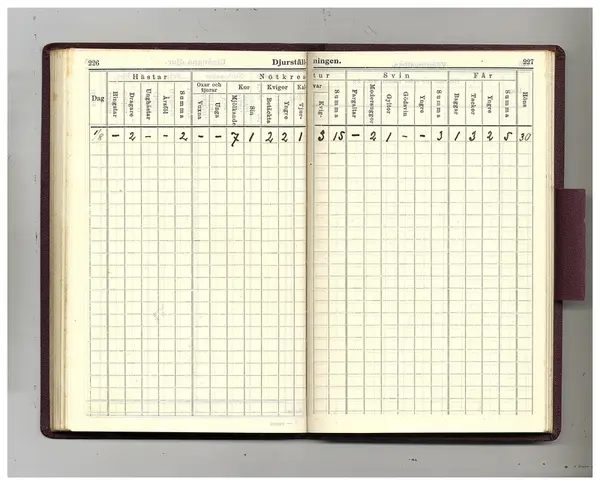 226 Djurställningen. 227
Hästar Nötkreatur Svin Får
Oxar och tjurar Kor Kvigor
Dag Hingstar Dragare Unghästar Årsföl Summa Vuxna Unga Mjölkande Sin Betäckta Yngre Tjur- Kvig- Summa Fargaltar Modersuggor Gyltor Gödsvin Yngre Summa Baggar Tackor Yngre Summa Höns
1/8 – 2 – – 2 – – 7 1 2 2 1 3 15 – 2 1 – – 3 1 3 2 5 30